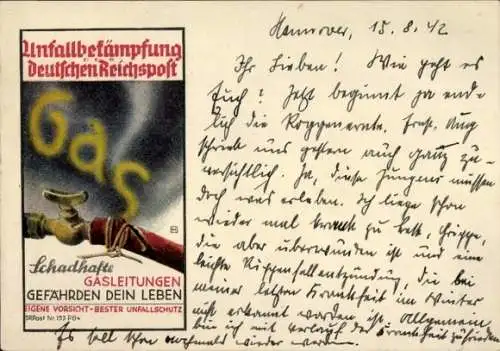 Unfallbekämpfung
deutschen Reichspost
Gas
Schadhafte
GASLEITUNGEN
GEFÄHRDEN DEIN LEBEN
EIGENE VORSICHT - BESTER UNFALLSCHUTZ
Hannover, 15.8.42
Ihr Lieben! Wie geht es
Euch? Jetzt beginnt ja end-
lich die Roggenernte. Ernst. Aug.
schrieb uns gestern auch ganz zu-
versichtlich. Ja, diese Jungens müssen
doch was erleben. Ich liege schon
wieder mal krank zu Bett, Grippe,
die aber überwunden ist und eine
leichte Rippenfellentzündung, die bei
meiner letzten Krankheit im Winter
nicht erkannt worden ist. Allgemein
bin ich mit Verlauf der Krankheit zufrieden
Es soll schon nochmals wieder werden.